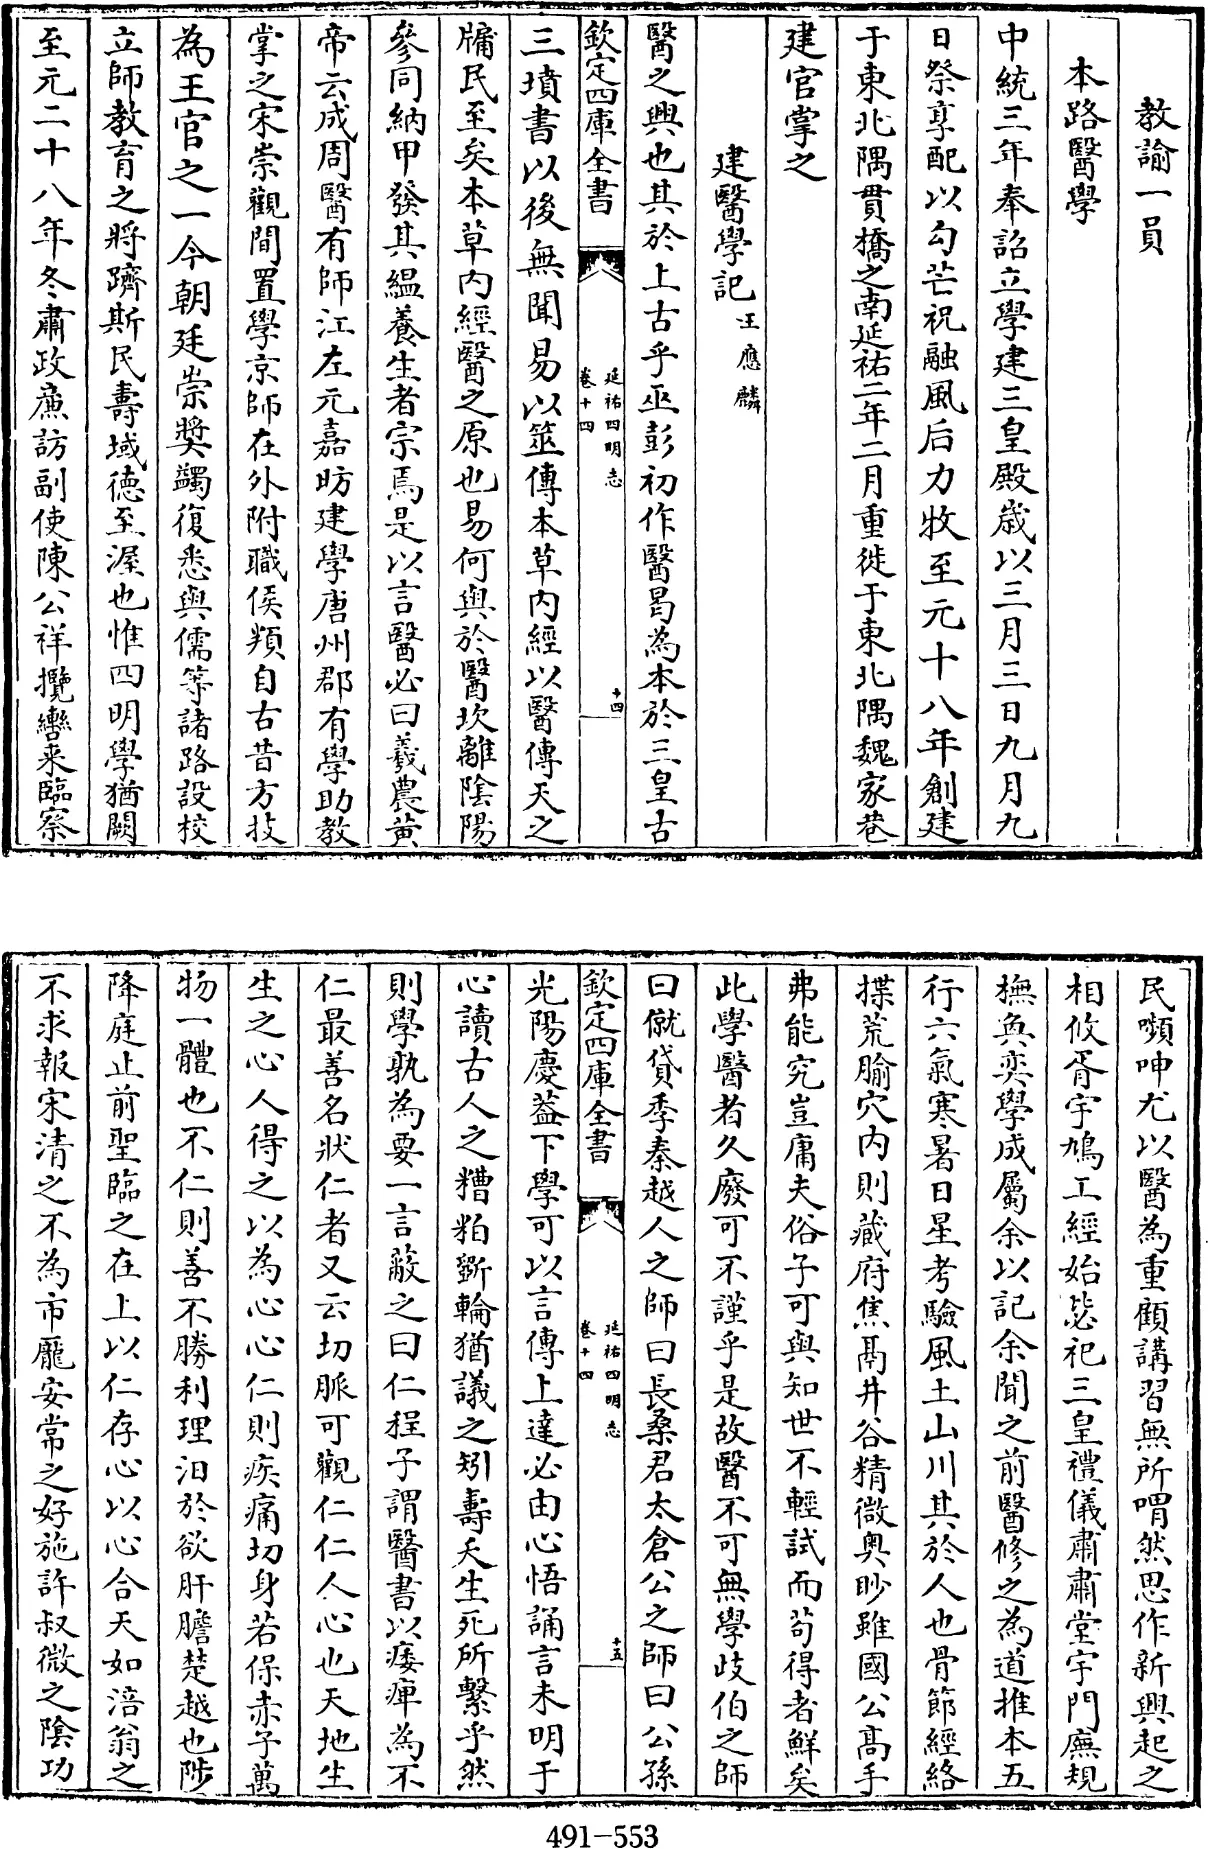 教諭一員
本路醫學
中統三年奉詔立學建三皇殿歳以三月三日九月九
日祭享配以勾芒祝融風后力牧至元十八年創建
于東北隅貫橋之南延祐二年二月重徙于東北隅魏家巷
建官掌之
建醫學記王應麟
醫之興也其於上古乎巫彭初作醫曷為本於三皇古
欽定四庫全書
延祐四明志
卷十四
十四
三墳書以後無聞易以筮傳本草内經以醫傳天之
牖民至矣本草内經醫之原也易何與於醫坎離陰陽
參同納甲發其緼養生者宗焉是以言醫必曰羲農黄
帝云成周醫有師江左元嘉昉建學唐州郡有學助教
掌之宋崇觀間置學京師在外附職侯頖自古昔方技
為王官之一今朝廷崇奬蠲復悉與儒等諸路設校
立師教育之將躋斯民壽域德至渥也惟四明學猶闕
至元二十八年冬肅政亷訪副使陳公祥攬轡来臨察
民嚬呻尤以醫為重顧講習無所喟然思作新興起之
相攸胥宇鳩工經始毖祀三皇禮儀肅肅堂宇門廡規
橅奐奕學成屬余以記余聞之前醫修之為道推本五
行六氣寒暑日星考驗風土山川其於人也骨節經絡
揲荒腧穴内則藏府焦鬲井谷精微奥眇雖國公髙手
弗能究豈庸夫俗子可與知世不輕試而茍得者鮮矣
此學醫者久廢可不謹乎是故醫不可無學歧伯之師
曰僦貸季秦越人之師曰長桑君太倉公之師曰公孫
欽定四庫全書
延祐四明志
卷十四
十五
光陽慶葢下學可以言傳上達必由心悟誦言未明于
心讀古人之糟粕斵輪猶議之矧壽夭生死所繫乎然
則學孰為要一言蔽之曰仁程子謂醫書以痿痺為不
仁最善名狀仁者又云切脈可觀仁仁人心也天地生
生之心人得之以為心心仁則疾痛切身若保赤子萬
物一體也不仁則善不勝利理汩於欲肝膽楚越也陟
降庭止前聖臨之在上以仁存心以心合天如涪翁之
不求報宋清之不為市龎安常之好施許叔微之陰功
491-553